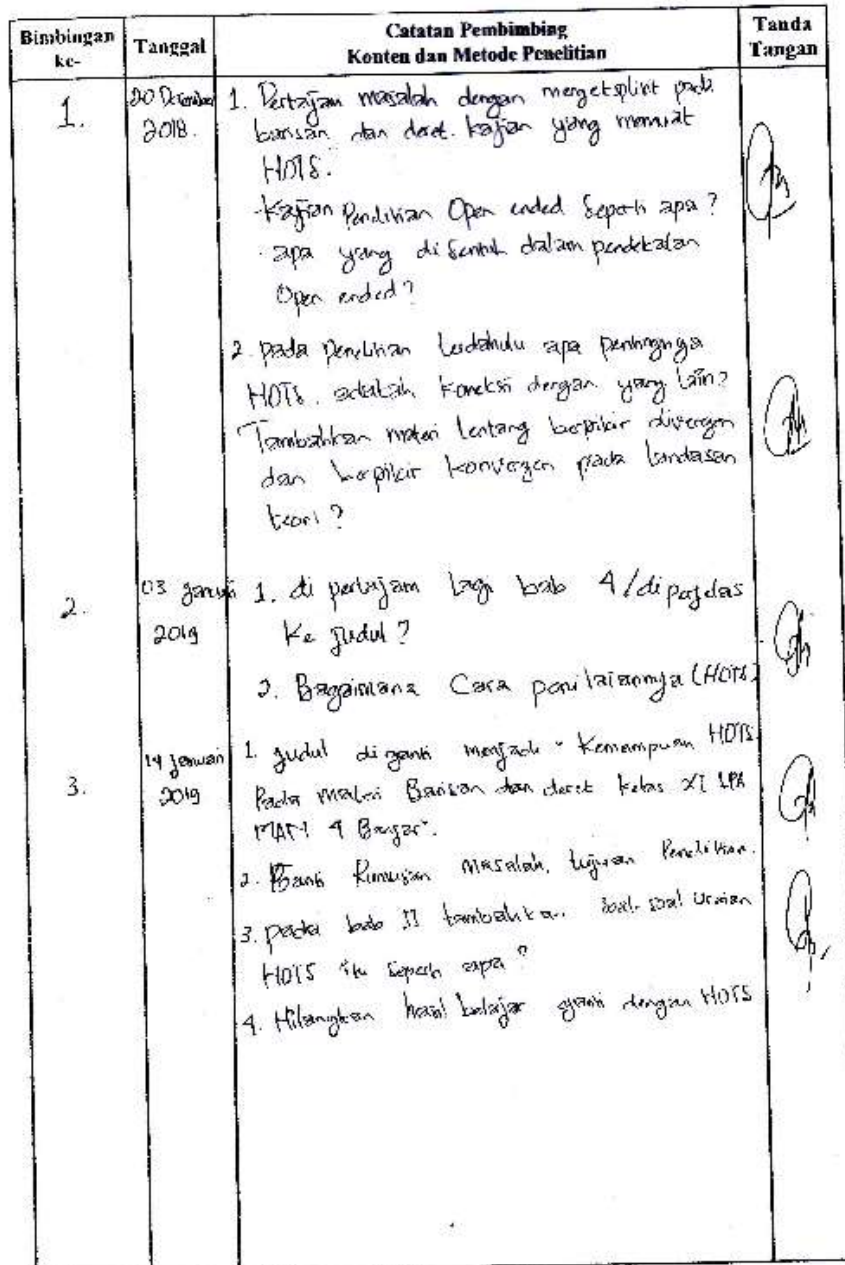 Bimbingan ke-
Tanggal
Catatan Pembimbing
Konten dan Metode Penelitian
Tanda Tangan
1.
20 Desember
2018.
1. Pertajam masalah dengan pada
barisan dan deret. kajian yang memuat
HOTS.
- Kajian Penelitian Open ended seperti apa?
- apa yang di sentuh dalam pendekatan
Open ended?
2. pada Penelitian terdahulu apa pentingnya
HOTS. adakah koneksi dengan yang lain?
Tambahkan materi tentang berpikir divergen
dan berpikir konvergen pada landasan
teori?
2.
03 Januari
2019
1. di pertajam lagi bab 4/di
ke judul?
2. Bagaimana Cara penilaiannya (HOTS)
3.
14 Januari
2019
1. judul di ganti menjadi "Kemampuan HOTS
Pada materi Barisan dan deret kelas XI IPA
MAN 4 Banjar".
2. Ganti Rumusan Masalah, tujuan Penelitian.
3. pada bab II tambahkan soal-soal uraian
HOTS itu seperti apa?
4. Hilangkan hasil belajar ganti dengan HOTS